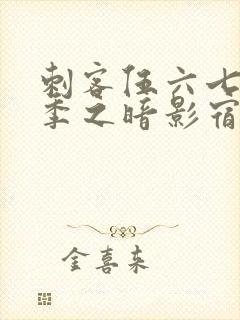 刺客伍六七
季之暗影宿
金喜来